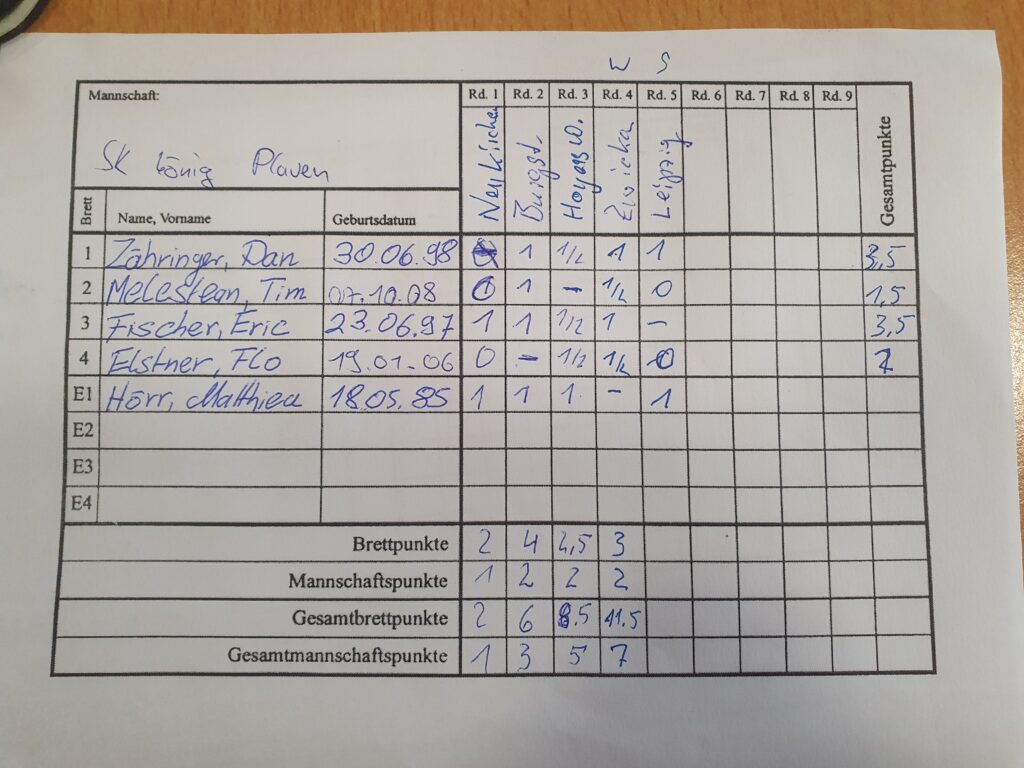 W S
Mannschaft: Rd. 1 Rd. 2 Rd. 3 Rd. 4 Rd. 5 Rd. 6 Rd. 7 Rd. 8 Rd. 9 Gesamtpunkte
SK König Plauen
Neukirchen Burgst. Leipzig
Brett Name, Vorname Geburtsdatum
1 Zähringer, Dan 30.06.98 1 1/2 1 1 3,5
2 Melestean, Tim 07.10.08 0 1 - 1/2 0 1,5
3 Fischer, Eric 23.06.97 1 1 1/2 1 - 3,5
4 Elstner, Flo 19.01.06 0 - 1/2 1/2 0 1
E1 Hörr, Matthieu 18.05.85 1 1 1 - 1
E2
E3
E4
Brettpunkte 2 4 2,5 3
Mannschaftspunkte 1 2 2 2
Gesamtbrettpunkte 2 6 8.5 11.5
Gesamtmannschaftspunkte 1 3 5 7